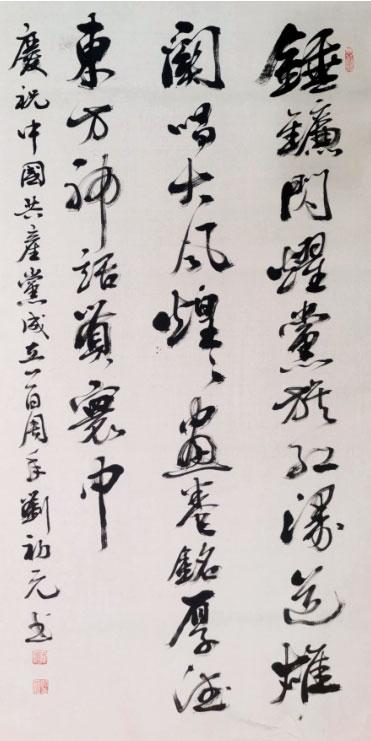 錘鐮閃耀黨旗紅漫道雄
關唱大風煌々畫卷銘厚德
東方神話貫寰中
慶祝中國共產黨成立一百周年劉初元书